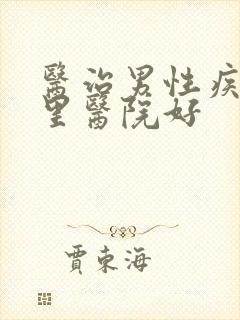 醫治男性疾
里醫院好
賈束海